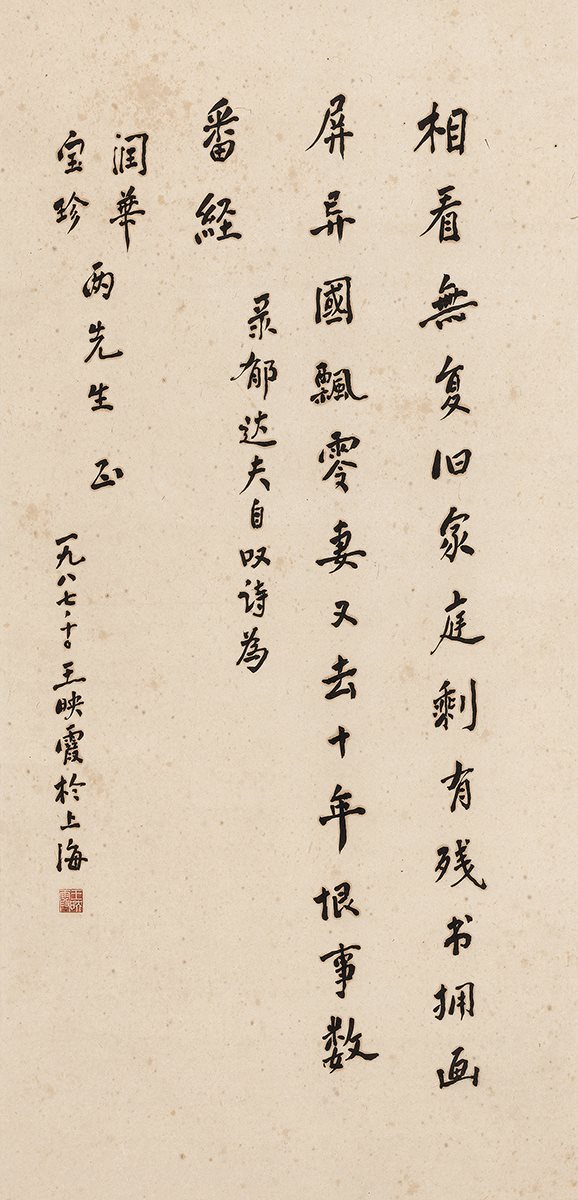 相看無复旧家庭剩有残书拥画
屏异國飄零妻又去十年恨事数
番経
录郁达夫自叹诗為
润華
宝珍
两先生正
一九八七·十。王映霞於上海
王映霞